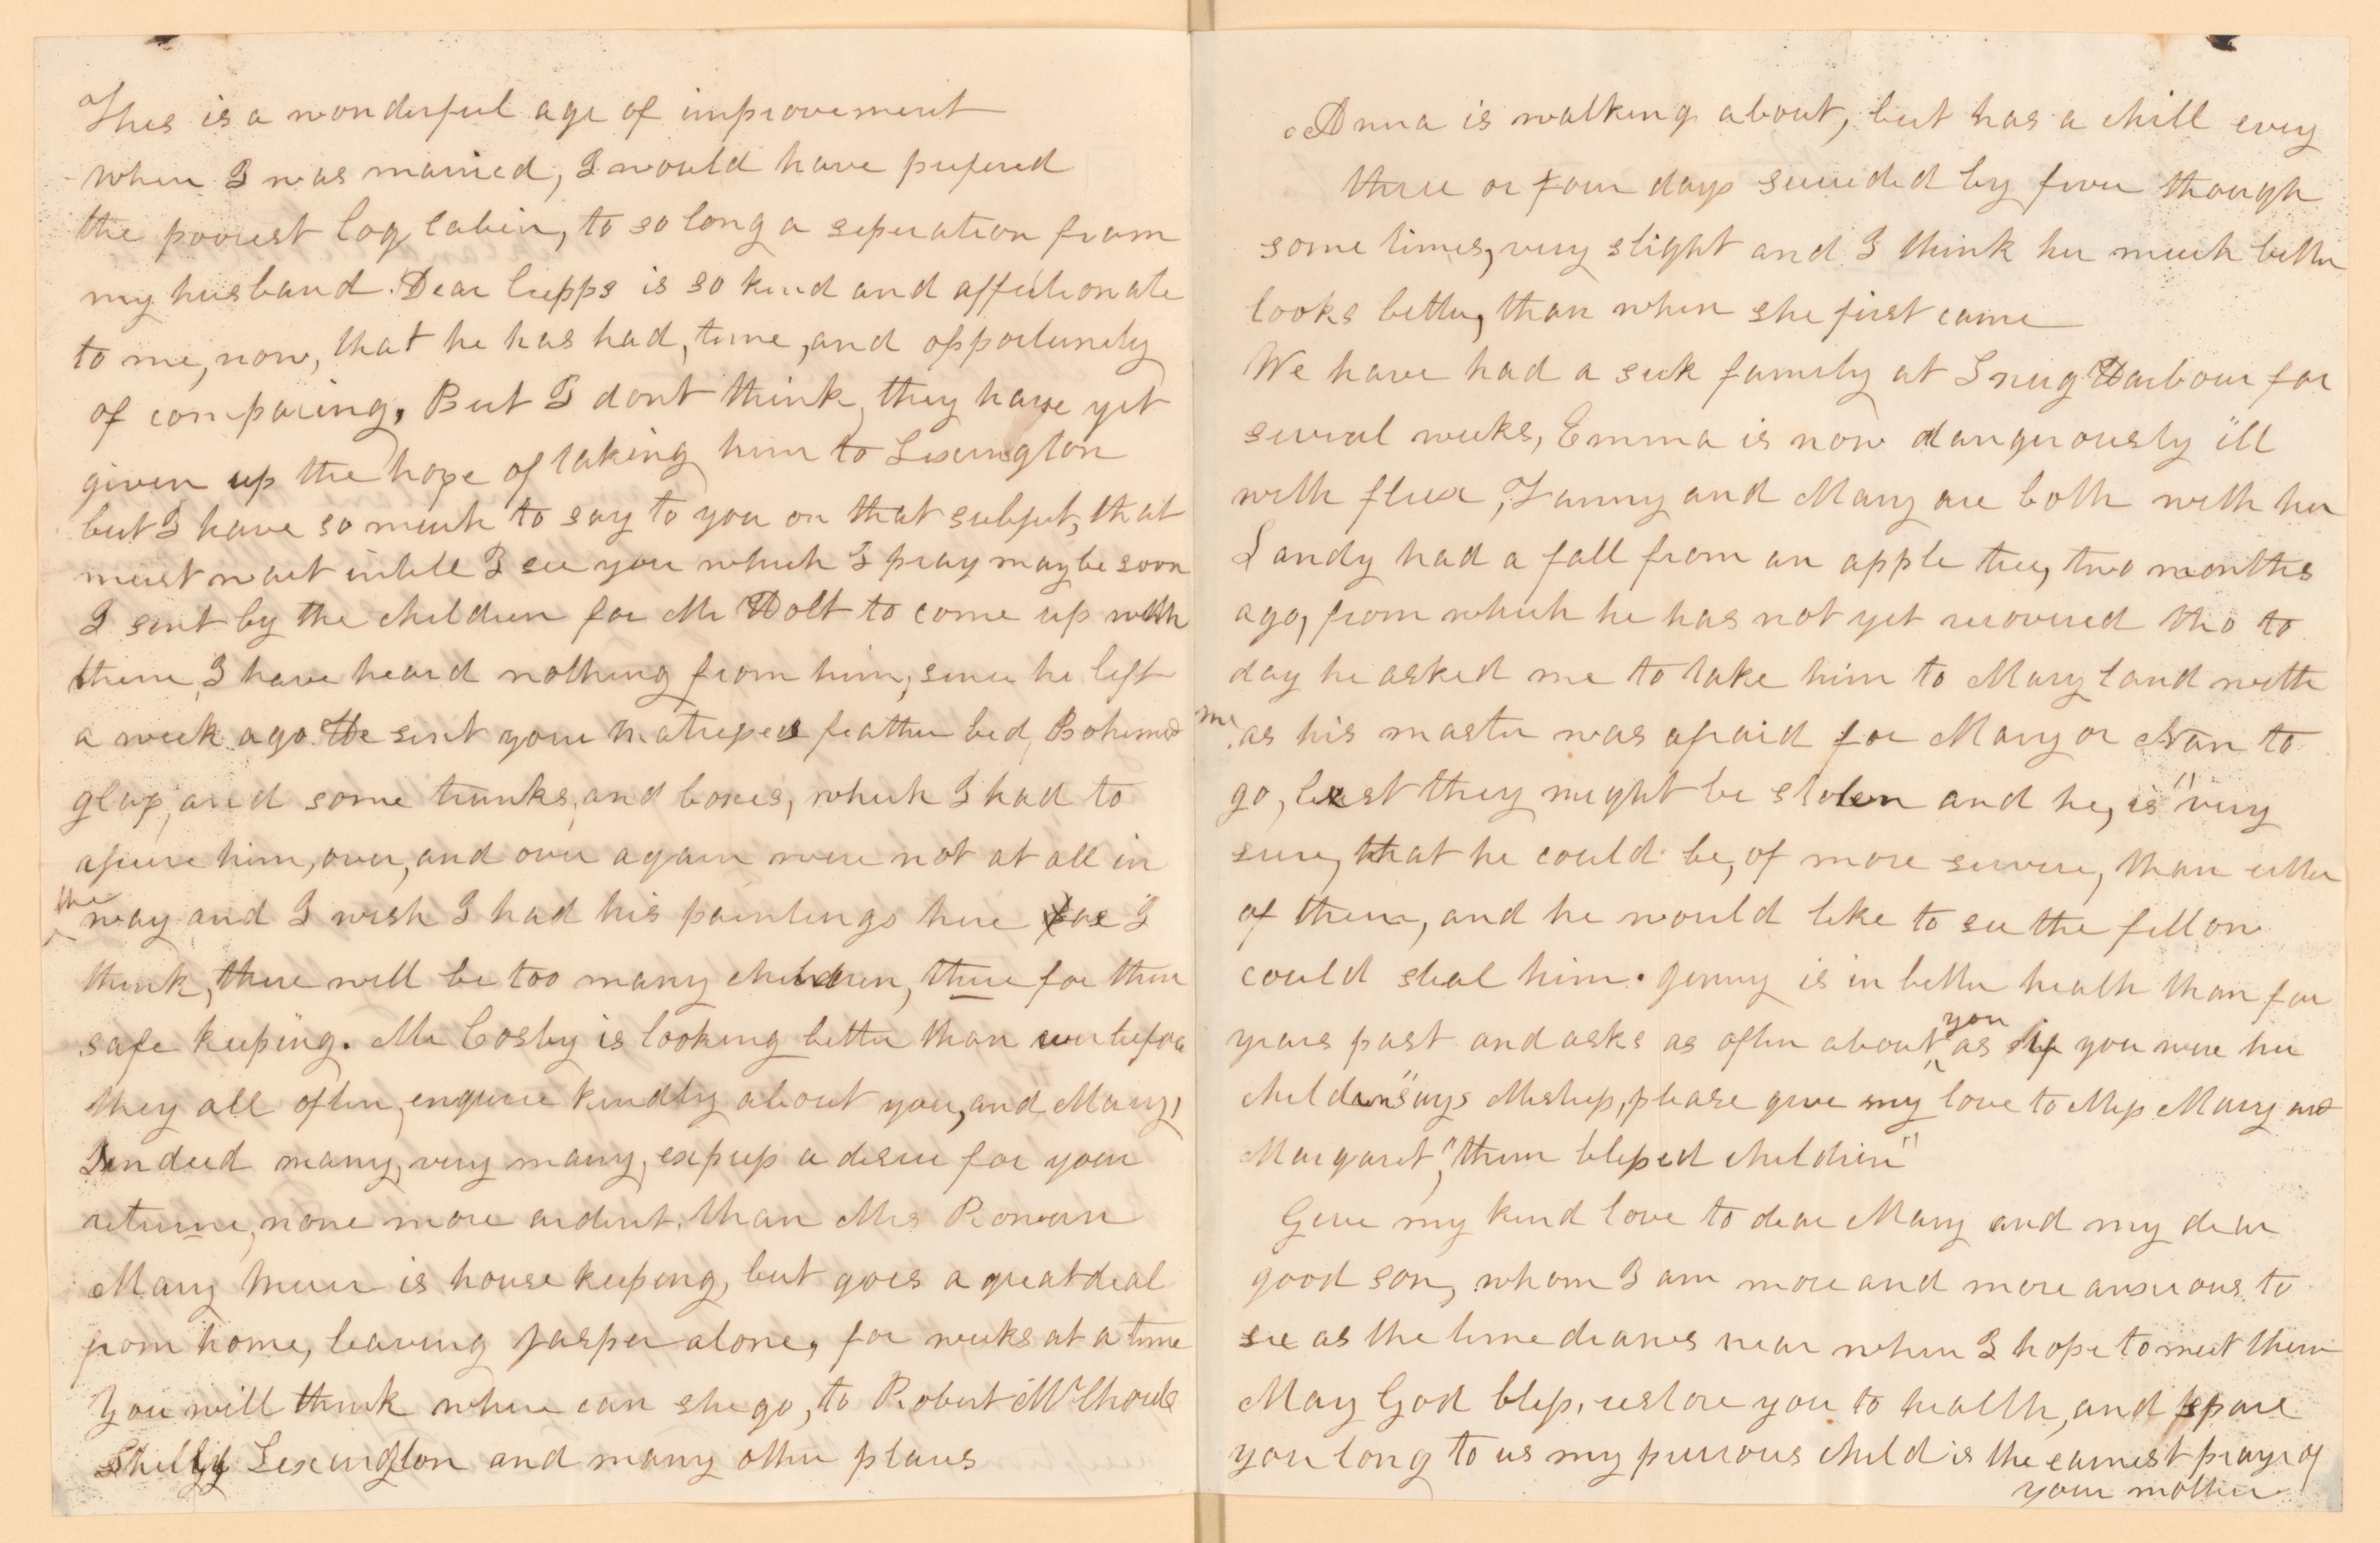 This is a wonderful age of improvement
when I was married, I would have prefered
the poorest log cabin, to so long a seperation from
my husband. Dear Cripps is so kind and affectionate
to me, now, that he has had, time, and opportunity
of comparing. But I dont think, they have yet
given up the hope of taking him to Lexington
but I have so much to say to you on that subject, that
must wait intill I see you which I pray may be soon
I sent by the children for Mr Holt to come up with
them, I have heard nothing from him, since he left
a week ago. He sent your matrasses feather bed, Bohemia
glass, and some trunks, and boxes, which I had to
assure him, over, and over again were not at all in
the way and I wish I had his paintings here for I
think, there will be too many children, there for their
safe keeping. Mr Cosby is looking better than ever before
they all often, enquire kindly about you, and Mary,
Indeed many, very many, express a desire for your
returne, none more ardent, than Mrs Rowan
Mary Muir is house keeping, but goes a great deal
from home, leaving Jasper alone, for weeks at a time
You will think where can she go, to Robert
Lexington and many other places
Anna is walking about, but has a chill every
three or four days succeeded by fever though
some times, very slight and I think her much better
looks better, than when she first came
We have had a sick family at Snug Harbour for
several weeks, Emma is now dangerously ill
with flux, Fanny and Mary are both with her
Sandy had a fall from an apple tree, two months
ago, from which he has not yet recovered tho to
day he asked me to take him to Mary land with
me, as his master was afraid for Mary or Nan to
go, least they might be stolen and he, is "very
sure, that he could be, of more service, than either
of them, and he would like to see the fellow
could steal him. Jenny is in better health than for
years past and asks as often about you as if you were her
children" says Mistress, please give my love to Miss Mary and
Margaret, "them blessed children"
Give my kind love to dear Mary and my dear
good son, whom I am more and more anxious to
see as the time draws near when I hope to meet them
May God bless, restore you to health, and spare
you long to us my precious child is the earnest prayer of
your mother